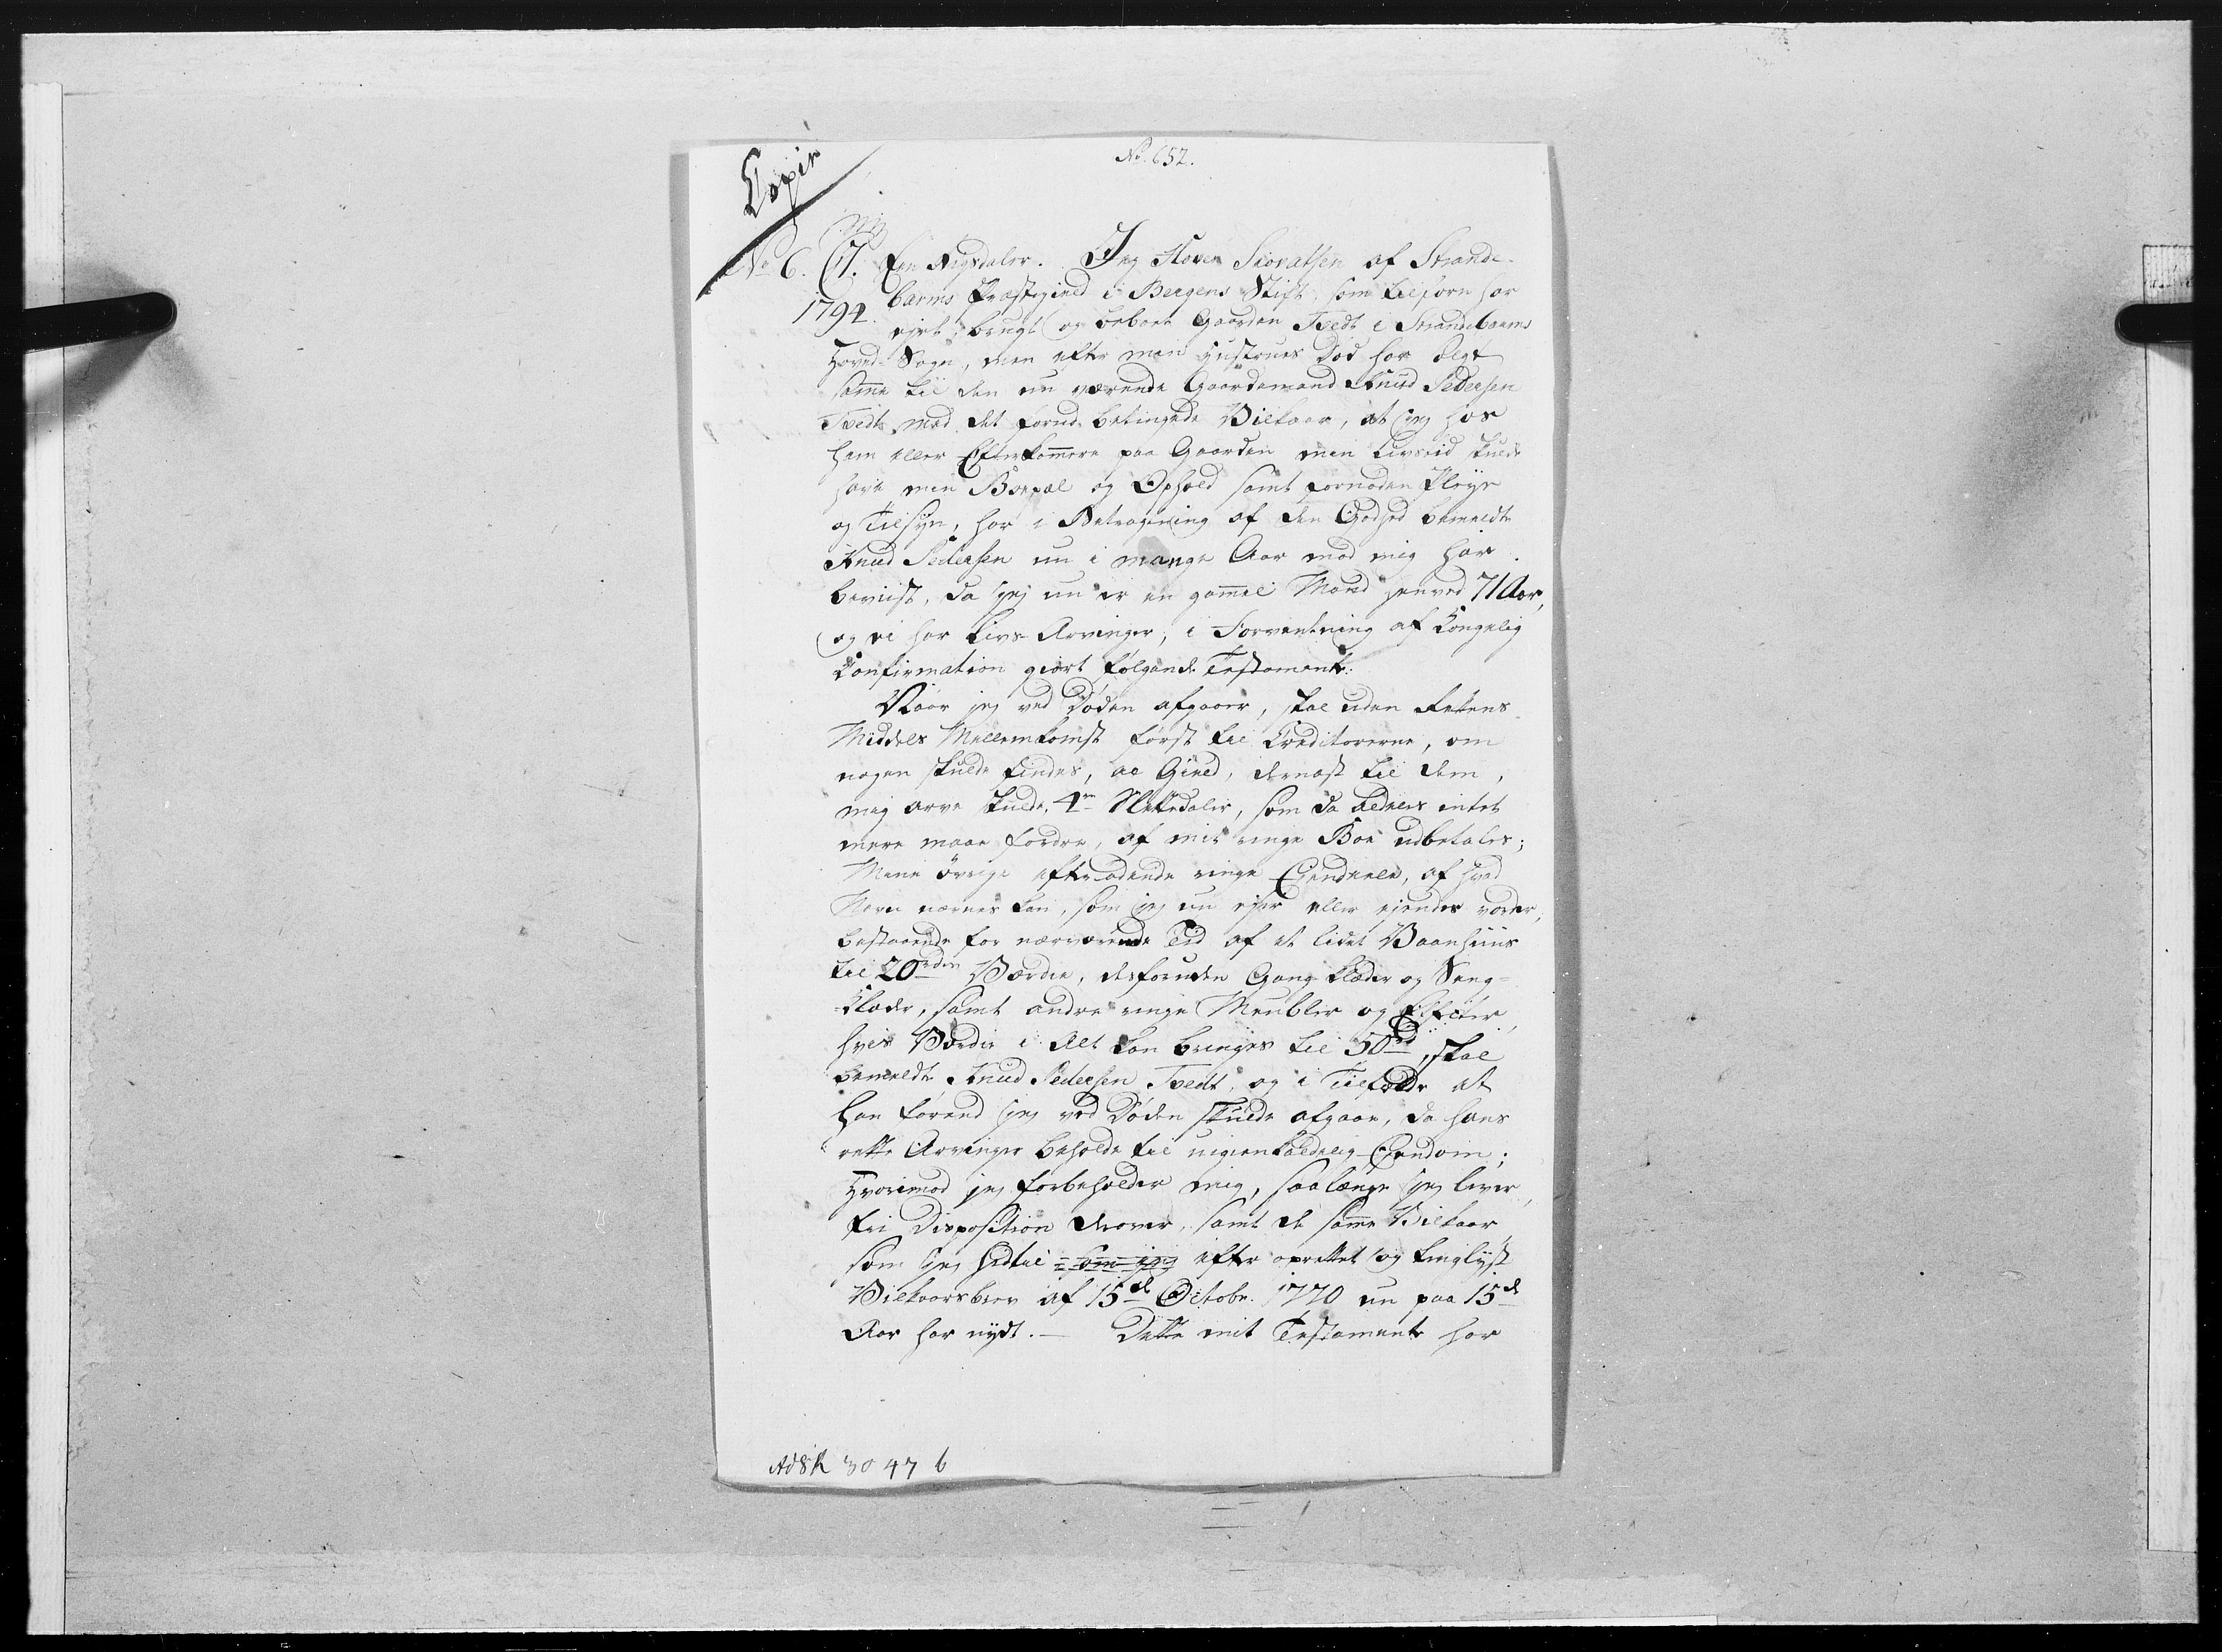 Copie
No. 652.
No 6. 17. Een Rigsdaler. Jeg Haver Siovatsen af Strande-
1794. barms Præstegield i Bergens Stift, som tilforn har
ejet, brugt og beboet Gaarden Tvedt i Strandebarms
Hoved-Sogn, men efter min Hustrues Død har solgt
samme til den nu værende Gaardemand Knud Pedersen
Tvedt, med det forud betingede Vilkaar, at jeg hos
ham eller Efterkommere paa Gaarden min Livstid skulde
have min Boepæl og Ophold samt fornøden Pleye
og Tilsyn, har i Betragtning af den Godhed bemeldte
Knud Pedersen nu i mange Aar mod mig har
beviist, da jeg nu er en gammel Mand henved 71 Aar,
og ei har Livs-Arvinger, i Forventning af Kongelig
Confirmation giort følgende Testament:
Naar jeg ved Døden afgaaer, skal uden Rettens
Middels Mellemkomst først til Creditorerne, om
nogen skulde findes, al Gield, dernæst til dem,
mig arve skulde, 4re Slettedaler, som da aldeles intet
mere maae fordre, af mit ringe Boe udbetales;
Mine øvrige efterladende ringe Eiendeele, af hvad
Navn nævnes kan, som jeg nu ejer eller ejendes vorder,
bestaaende for nærværende Tid af et lidet Vaanhuus
til 20 rdlr Værdie, desforuden Gang-Klæder og Seng-
Klæder, samt andre ringe Meubler og Effecter,
hvis Værdie i Alt kan bringes til 50 rd, skal
bemeldte Knud Pedersen Tvedt, og i Tilfælde at
han førend jeg ved Døden skulde afgaae, da hans
rette Arvinger beholde til uigienkaldelig Eiendom;
Hvorimod jeg forbeholder mig, saalænge jeg lever,
fri Disposition derover, samt de samme Vilkaar,
som jeg hidtil som jeg efter oprettet og tinglyst
Vilkaarsbrev af 15de Octobr. 1770 nu paa 15de
Aar har nydt. — Dette mit Testament har
AdSk 3047 b